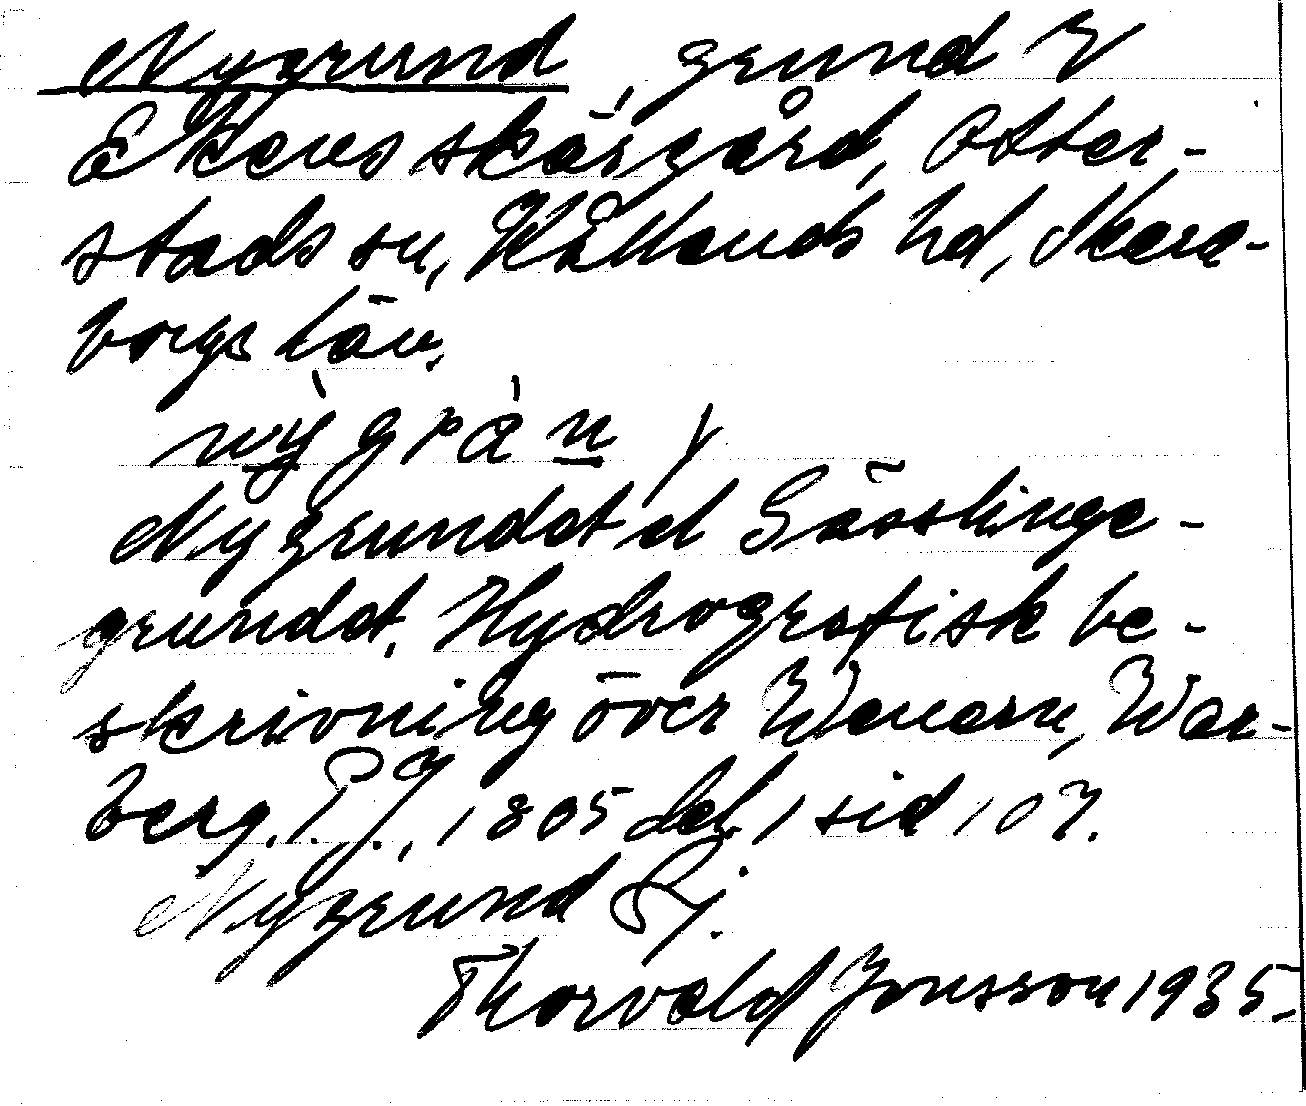 Nygrund, grund i
Ekens skärgård, Otter-
stads sn, Kållands hd, Skara-
borgs län.
nỳgrán
Nygrundet el Gässlinge-
grundet. Hydrografisk be-
skrivning över Wenern, War-
berg. P. G., 1805 del. 1 sid 107.
Nygrund Rj.
Thorvald Jonsson 1935.